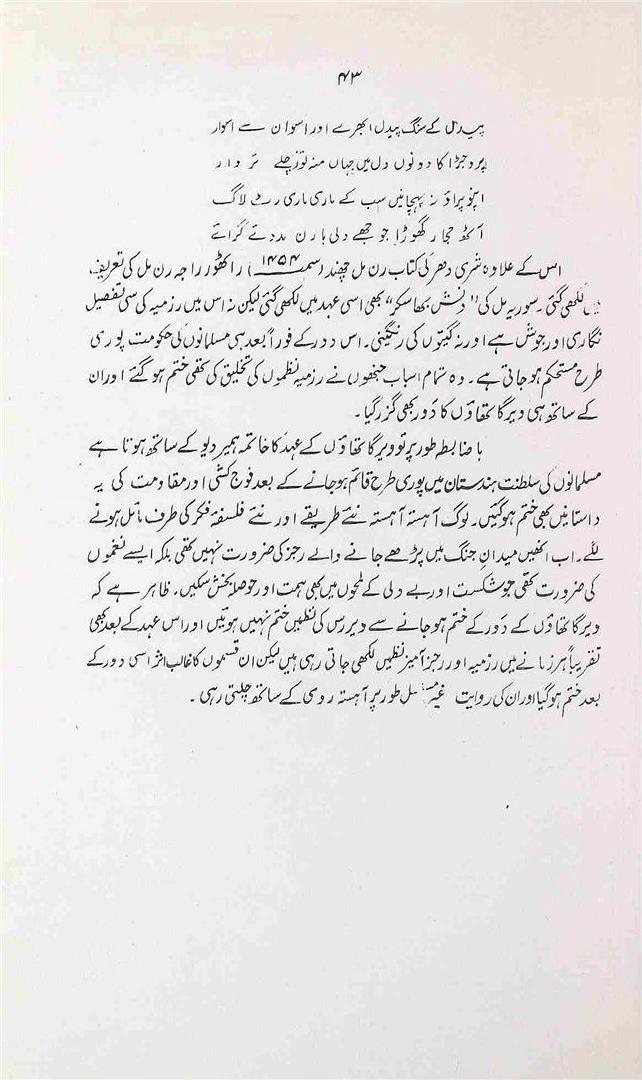 ۴۳
پیدل کے سنگ پیدل ابھرے اور اسوان سے اسوار
پردجڑا کا دونوں دل میں جہاں منہ توڑ چلے تردار
اپنو پراؤ نہ پہچانیں سب کے ماری ماری رٹ لاگ
آٹھ ہجار گھوڑا جوجھے دلی بارن ددتے گراتے
اس کے علاوہ شری دھر کی کتاب رن مل چھند (سمت ۱۴۵۴) راٹھور راجہ رن مل کی تعریف
میں لکھی گئی۔ سوریہ مل کی "ونش بھاسکر" بھی اسی عہد میں لکھی گئی لیکن نہ اس میں رزمیہ کی سی تفصیل
نگاری اور جوش ہے اور نہ گیتوں کی رنگینی۔ اس دور کے فوراً بعد ہی مسلمانوں کی حکومت پوری
طرح مستحکم ہو جاتی ہے۔ وہ تمام اسباب جنھوں نے رزمیہ نظموں کی تخلیق کی تھی ختم ہو گئے اور ان
کے ساتھ ہی ویرگاتھاؤں کا دور بھی گزر گیا۔
باضابطہ طور پر تو ویرگاتھاؤں کے عہد کا خاتمہ ہمیر دیو کے ساتھ ہوتا ہے
مسلمانوں کی سلطنت ہندستان میں پوری طرح قائم ہو جانے کے بعد فوج کشی اور مقاومت کی یہ
داستانیں بھی ختم ہو گئیں۔ لوگ آہستہ آہستہ نئے طریقے اور نئے فلسفۂ فکر کی طرف مائل ہونے
لگے۔ اب انھیں میدانِ جنگ میں پڑھے جانے والے رجز کی ضرورت نہیں تھی بلکہ ایسے نغموں
کی ضرورت تھی جو شکست اور بے دلی کے لمحوں میں بھی ہمت اور حوصلہ بخش سکیں۔ ظاہر ہے کہ
ویرگاتھاؤں کے دَور کے ختم ہو جانے سے ویر رس کی نظمیں ختم نہیں ہوئیں اور اس عہد کے بعد بھی
تقریباً ہر زمانے میں رزمیہ اور رجز آمیز نظمیں لکھی جاتی رہی ہیں لیکن ان قسموں کا غالب اثر اسی دور کے
بعد ختم ہو گیا اور ان کی روایت غیر مسلسل طور پر آہستہ روی کے ساتھ چلتی رہی۔